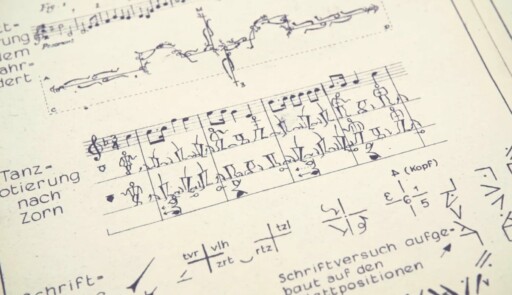 dem
dert
Tanz-
otierung
nach
Zorn
(Kopf)
tvr vlh
zrt
tzl
rtz
3 1
6 5
hrift-
Schriftversuch aufge-
baut auf den
attpositionen